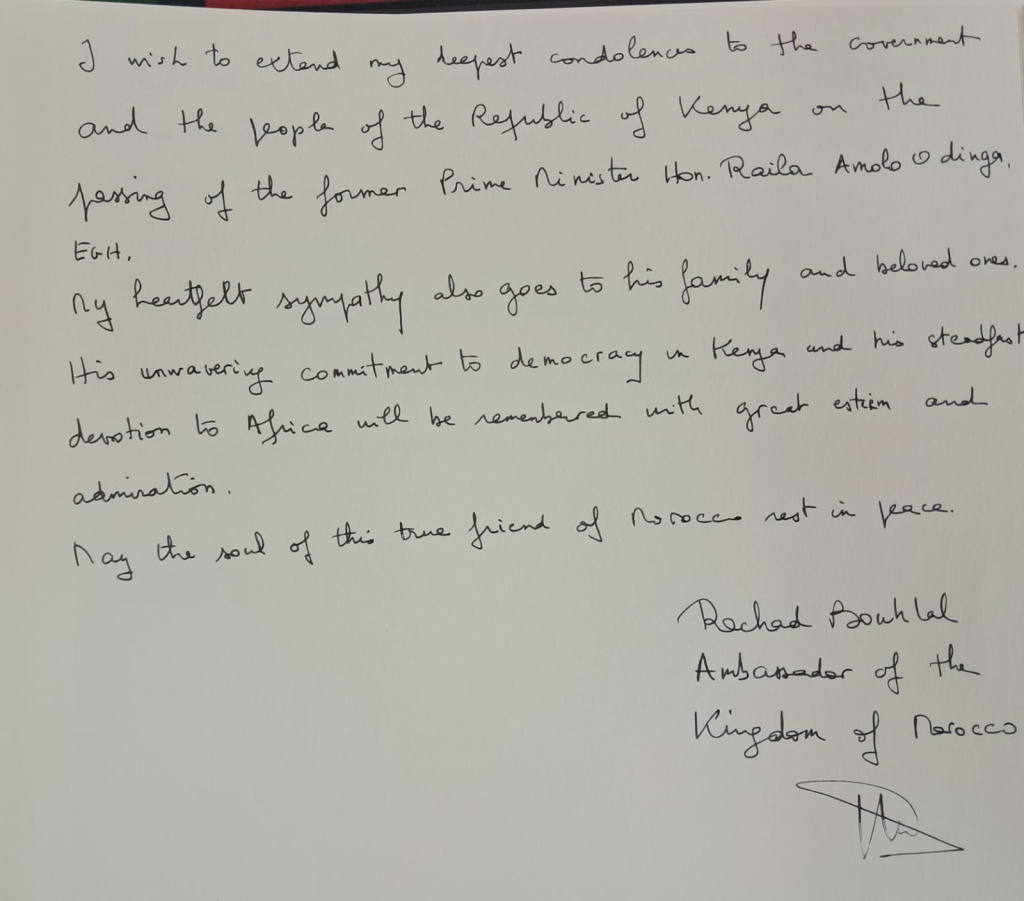 I wish to extend my deepest condolences to the Government
and the people of the Republic of Kenya on the
passing of the former Prime Minister Hon. Raila Amolo Odinga,
EGH.
My heartfelt sympathy also goes to his family and beloved ones.
His unwavering commitment to democracy in Kenya and his steadfast
devotion to Africa will be remembered with great esteem and
admiration.
May the soul of this true friend of Morocco rest in peace.
Rachad Bouhlal
Ambassador of the
Kingdom of Morocco